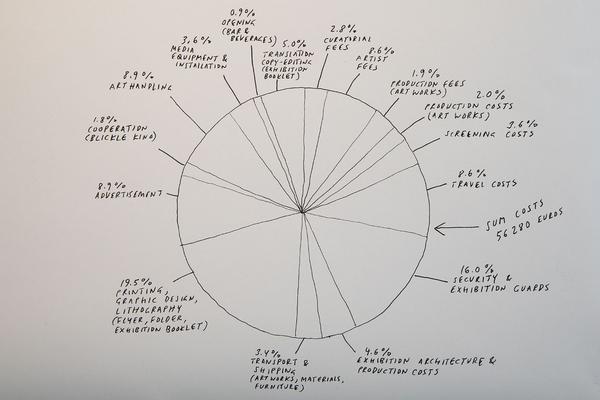 0.9%
OPENING
(BAR &
BEVERAGES)
2.8%
CURATORIAL
FEES
8.6%
ARTIST
FEES
1.9%
PRODUCTION FEES
(ART WORKS)
2.0%
PRODUCTION COSTS
(ART WORKS)
3.6%
SCREENING COSTS
8.6%
TRAVEL COSTS
SUM COSTS
56 280 EUROS
16.0%
SECURITY &
EXHIBITION GUARDS
4.6%
EXHIBITION ARCHITECTURE &
PRODUCTION COSTS
3.4%
TRANSPORT &
SHIPPING
(ART WORKS, MATERIALS,
FURNITURE)
19.5%
PRINTING,
GRAPHIC DESIGN,
LITHOGRAPHY
(FLYER, FOLDER,
EXHIBITION BOOKLET)
8.9%
ADVERTISEMENT
1.8%
COOPERATION
(BLICKLE KINO)
8.9%
ART HANDLING
3,6%
MEDIA
EQUIPMENT &
INSTALLATION
5.0%
TRANSLATION
COPY-EDITING
(EXHIBITION
BOOKLET)